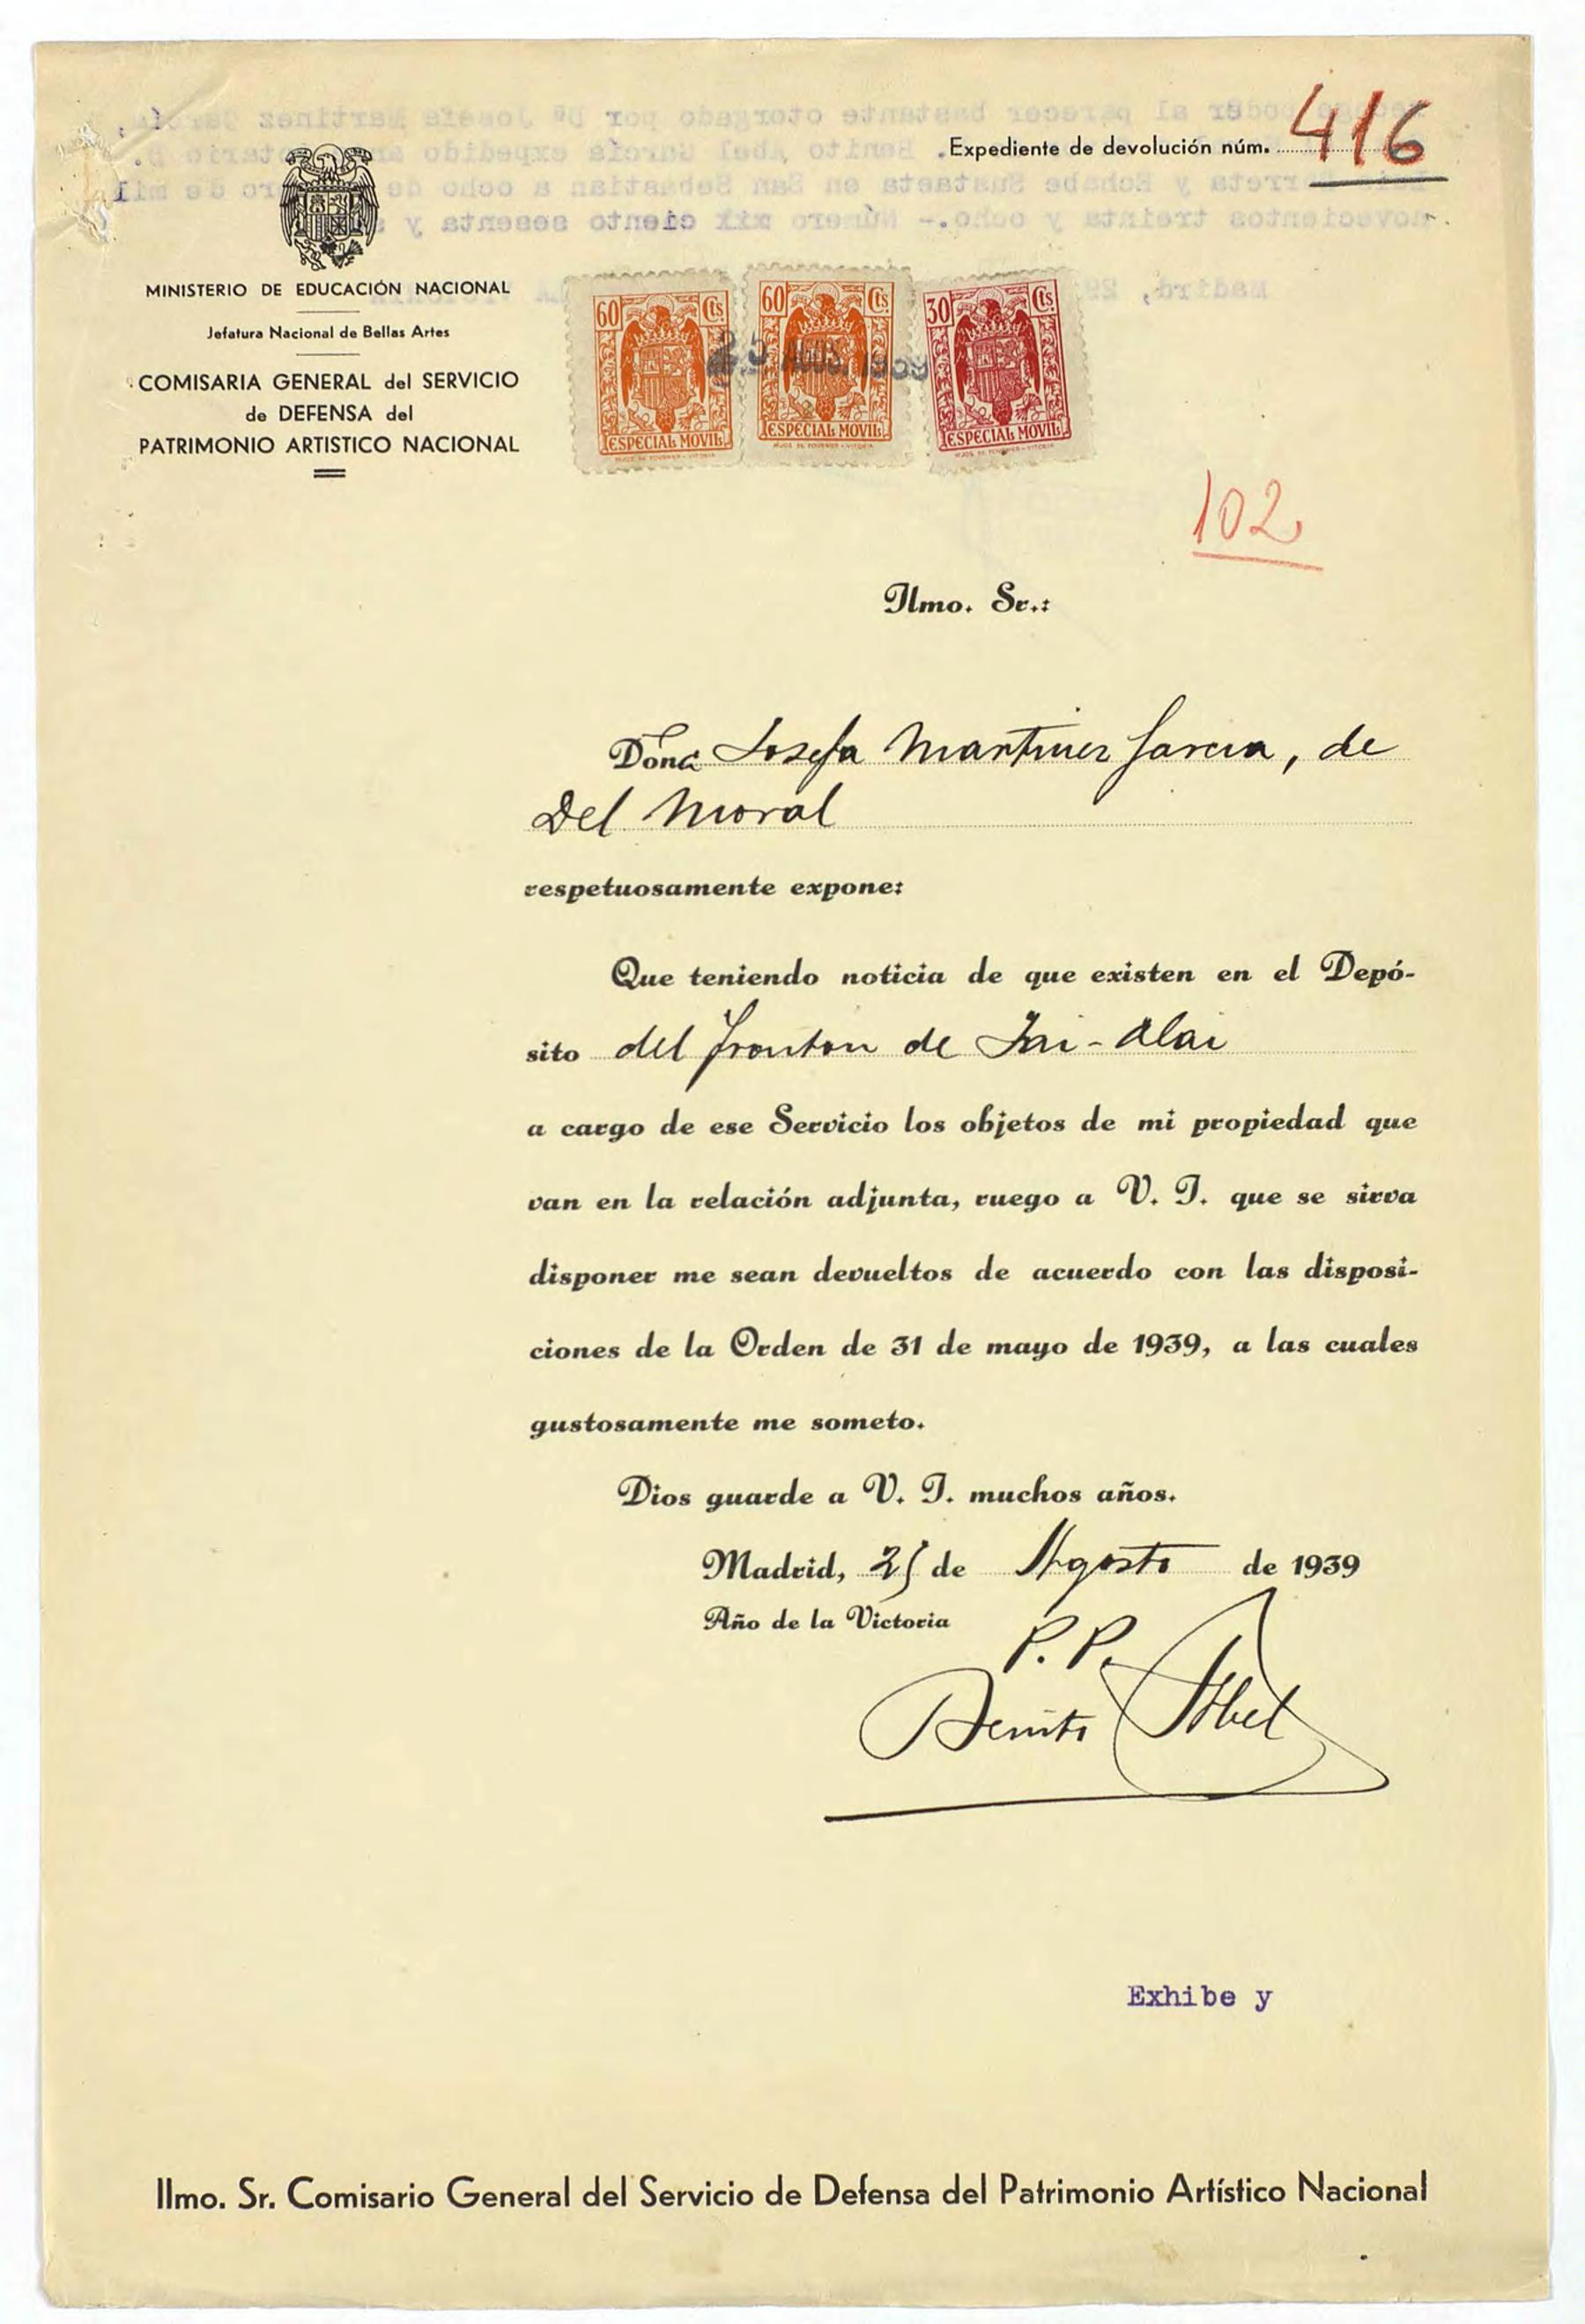 Expediente de devolución núm. 416
MINISTERIO DE EDUCACIÓN NACIONAL
Jefatura Nacional de Bellas Artes
COMISARIA GENERAL del SERVICIO
de DEFENSA del
PATRIMONIO ARTISTICO NACIONAL
60 Cts 60 Cts 30 Cts
AGOS. 1939
ESPECIAL MOVIL ESPECIAL MOVIL ESPECIAL MOVIL
HIJOS DE FOURNIER - VITORIA HIJOS DE FOURNIER - VITORIA HIJOS DE FOURNIER - VITORIA
102
Ilmo. Sr.:
Doña Josefa Martinez Garcia, de
Del Moral
respetuosamente expone:
Que teniendo noticia de que existen en el Depó-
sito del fronton de Jai-Alai
a cargo de ese Servicio los objetos de mi propiedad que
van en la relación adjunta, ruego a V. I. que se sirva
disponer me sean devueltos de acuerdo con las disposi-
ciones de la Orden de 31 de mayo de 1939, a las cuales
gustosamente me someto.
Dios guarde a V. I. muchos años.
Madrid, 25 de Agosto de 1939
Año de la Victoria
P.P.
Benito Abel
Exhibe y
Ilmo. Sr. Comisario General del Servicio de Defensa del Patrimonio Artístico Nacional